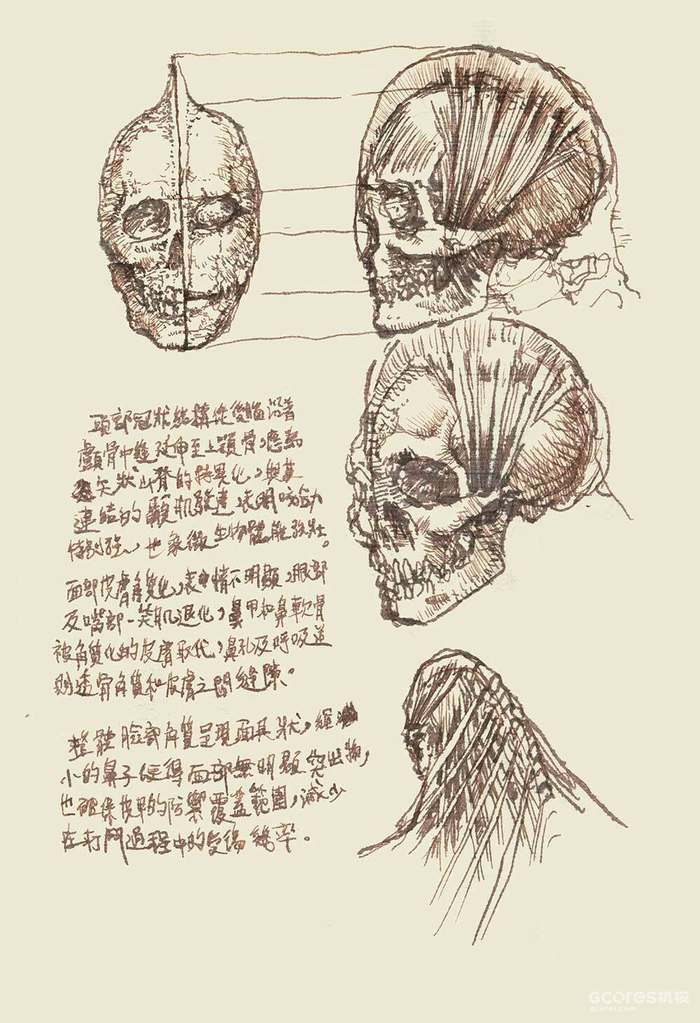 頭部冠狀結構從後腦沿著
顱骨中縫延伸至上顎骨,應為
矢狀山脊的特異化,與其
連結的顳肌發達表明咬動
特別強,也象徵生物體能強壯。
面部皮膚角質化,表情不明顯,眼部
及嘴部-笑肌退化,鼻甲和鼻軟骨
被角質化的皮膚取代,鼻孔及呼吸道
則透骨角質和皮膚之間縫隙。
整體臉部角質呈現面具狀,縮
小的鼻子使得面部無明顯突出物,
也確保皮甲的防禦覆蓋範圍,減少
在打鬥過程中的受傷機率。
GCORES机核
gcores.com